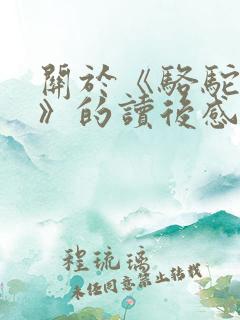 關於《駱駝
》的讀後感
程琉璃
未經同意禁止轉載